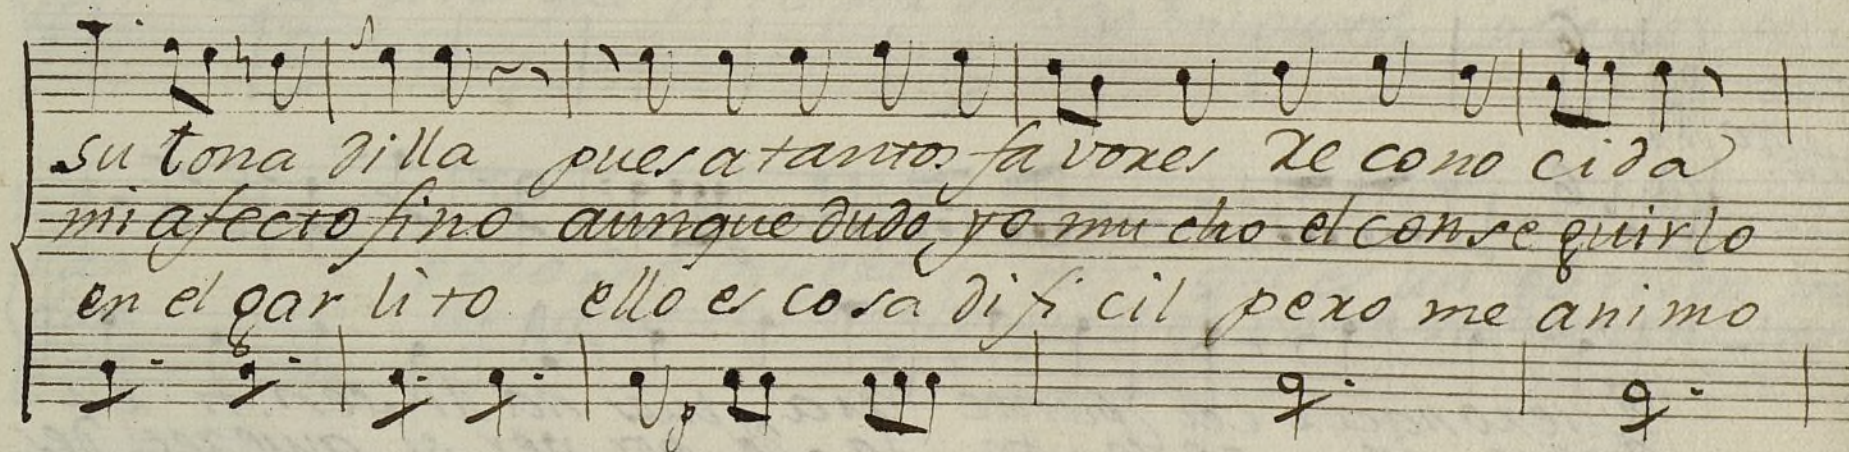 su tona dilla pues a tantos fa vores re cono cida
mi afecto fino aunque dudo yo mu cho el conse guirlo
en el gar lito ello es cosa difi cil pero me animo
p